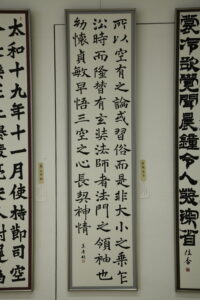 裳冷欲覺聞晨鐘令人發深省
所以空有之論或習俗而是非大小之乘乍
沿時而隆替有玄奘法師者法門之領袖也
幼懷貞敏早悟三空之心長契神情
太和十九年十一月使持節司空